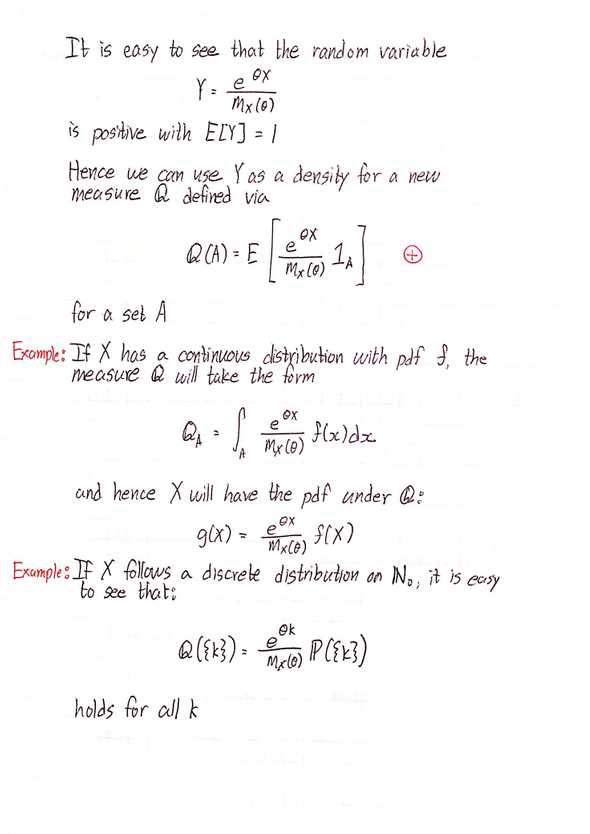 It is easy to see that the random variable
Y = e^{θX} / m_X(θ)
is positive with E[Y] = 1
Hence we can use Y as a density for a new
measure Q defined via
Q(A) = E [ e^{θX} / m_X(θ) 1_A ] ⊕
for a set A
Example: If X has a continuous distribution with pdf f, the
measure Q will take the form
Q_A = ∫_A e^{θX} / m_X(θ) f(x)dx
and hence X will have the pdf under Q:
g(X) = e^{θX} / m_X(θ) f(X)
Example: IF X follows a discrete distribution on ℕ₀, it is easy
to see that:
Q({k}) = e^{θk} / m_X(θ) ℙ({k})
holds for all k